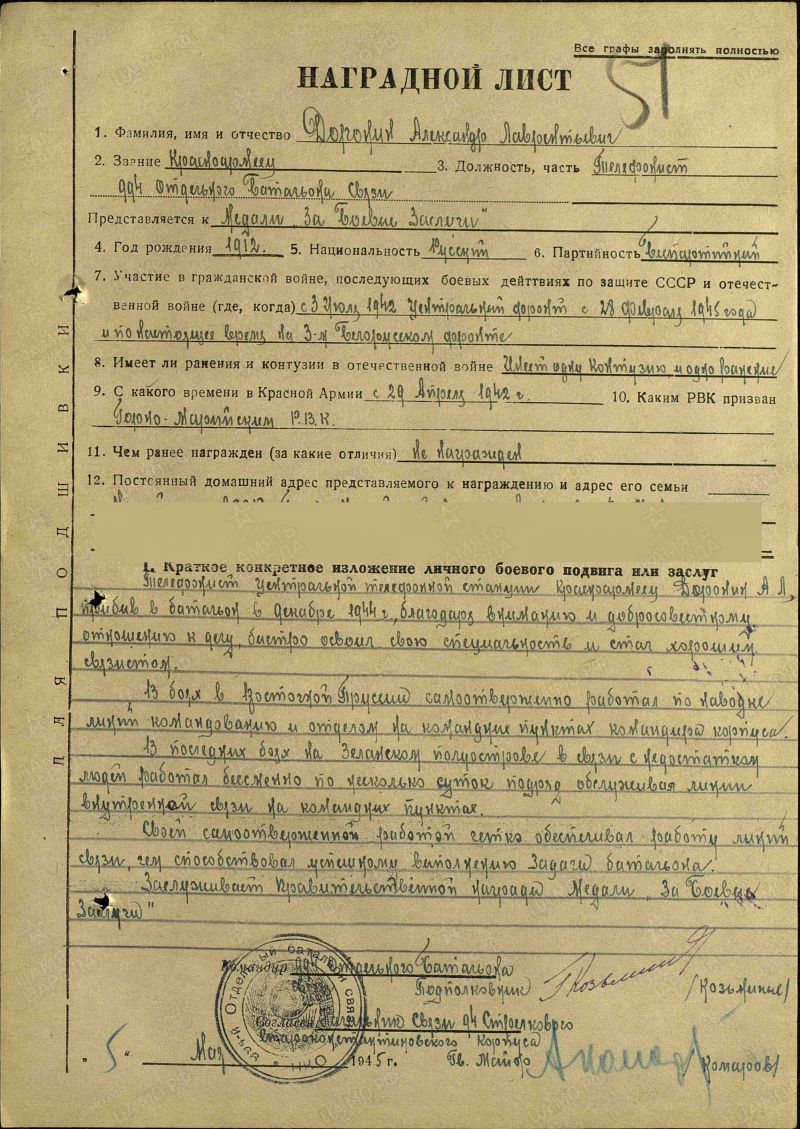 Все графы заполнять полностью
НАГРАДНОЙ ЛИСТ
51
1. Фамилия, имя и отчество Доронин Александр Лаврентьевич
2. Звание Красноармеец 3. Должность, часть Телефонист
994 Отдельного Батальона Связи
Представляется к Медали „За Боевые Заслуги"
4. Год рождения 1912. 5. Национальность Русский 6. Партийность Беспартийный
7. Участие в гражданской войне, последующих боевых действиях по защите СССР и отечест-
венной войне (где, когда) с 3 Июля 1942 Центральный фронт с 28 Февраля 1945 года
и по настоящее время на 3-м Белорусском фронте
8. Имеет ли ранения и контузии в отечественной войне Имеет одну контузию и одно ранение
9. С какого времени в Красной Армии с 29 Апреля 1942 г. 10. Каким РВК призван
Горно-Марийским Р.В.К.
11. Чем ранее награжден (за какие отличия) не награжден
12. Постоянный домашний адрес представляемого к награждению и адрес его семьи
I. Краткое конкретное изложение личного боевого подвига или заслуг
Телефонист Центральной телефонной станции Красноармеец Доронин А.Л.
прибыв в батальон в декабре 1944 г., благодаря вниманию и добросовестному
отношению к делу, быстро освоил свою специальность и стал хорошим
связистом.
В боях в Восточной Пруссии самоотверженно работал по наводке
линий командованию и отделам на командных пунктах командира корпуса.
В последних боях на Земландском полуострове в связи с недостатком
людей работал бессменно по несколько суток подряд обслуживая линии
внутренной связи на командных пунктах.
Своей самоотверженной работой четко обеспечивал работу линий
связи, чем способствовал успешному выполнению Задачи батальона.
Заслуживает Правительственной награды Медали „За Боевые
Заслуги"
Командир 994 Отдельного Батальона
Связи Подполковник /Козьминых/
Согласен Начальник Связи 94 Стрелкового
Корпуса
Гв. Майор /Комаров/
„5" Мая 1945 г.
Отдельный батальон связи
ДЛЯ ПОДШИВКИ